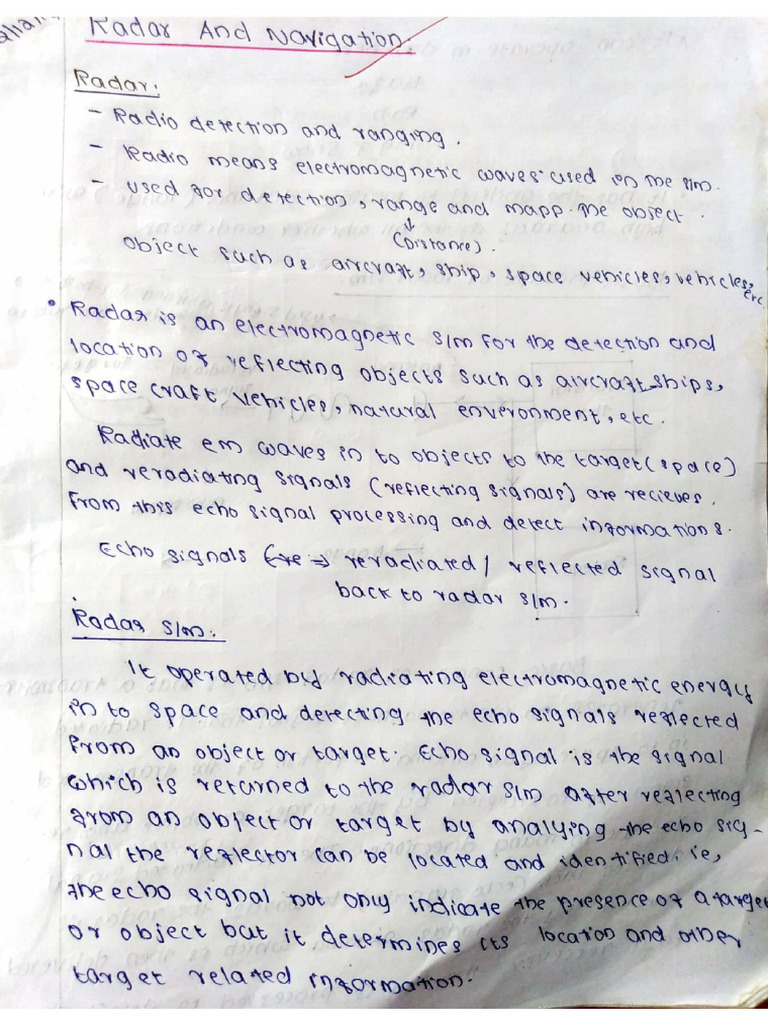 Radar And Navigation.
Radar:
- Radio detection and ranging.
- Radio means electromagnetic waves used in the s/m.
- used for detection, range and mapp. the object.
↓
(Distance).
object such as aircraft, ship, space vehicles, vehicles, etc.
• Radar is an electromagnetic s/m for the detection and
location of reflecting objects such as aircraft, ships,
space craft, vehicles, natural enveronment, etc.
Radiate em waves in to objects to the target (space)
and reradiating signals (reflecting signals) are recieves.
From this echo signal processing and detect informations.
Echo signals ⇒ reradiated / reflected signal
back to radar s/m.
Radar s/m:
It operated by radiating electromagnetic energy
in to space and detecting the echo signals reflected
from an object or target. Echo signal is the signal
which is returned to the radar s/m after reflecting
from an object or target by analying the echo sig-
nal the reflector can be located and identified. ie,
the echo signal not only indicate the presence of a target
or object but it determines its location and other
target related information.